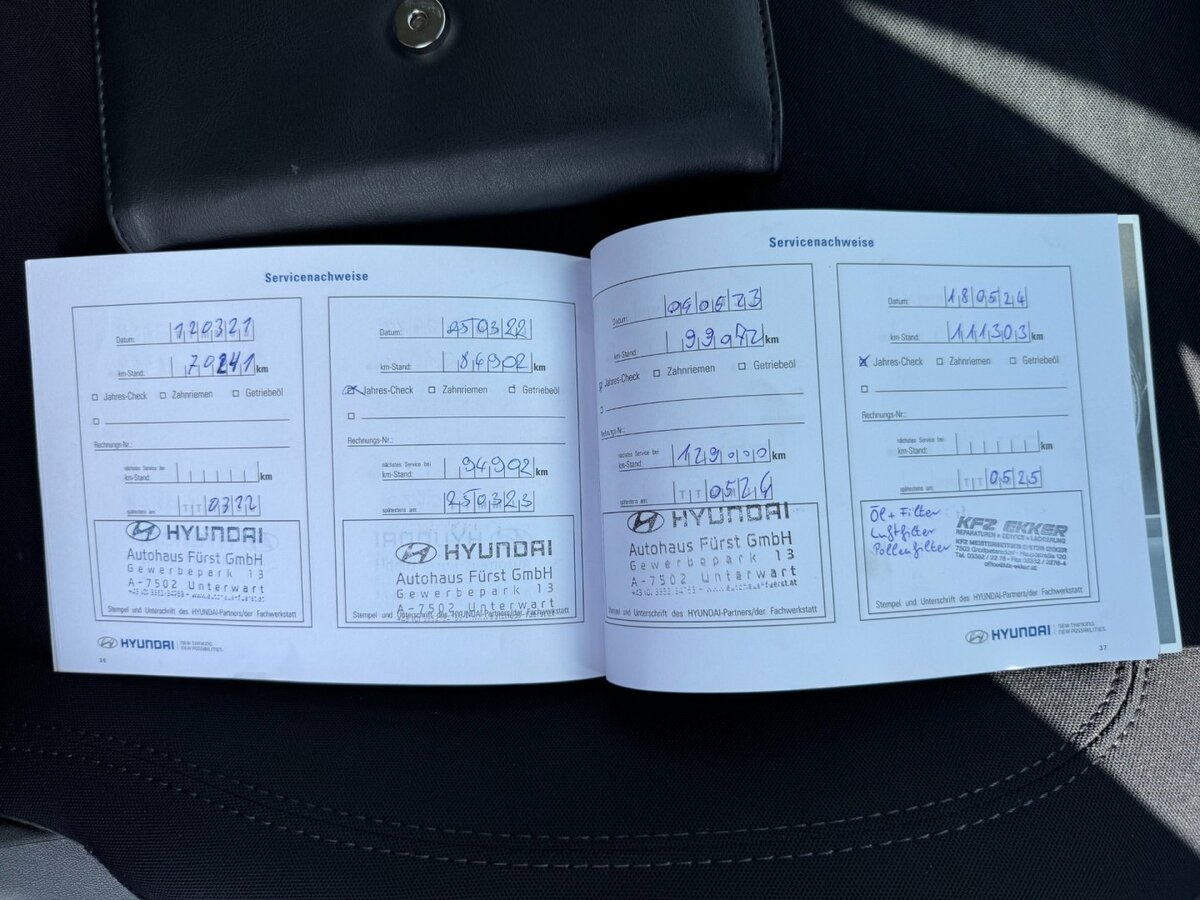 Servicenachweise
Datum: 120321
km-Stand: 70241 km
Jahres-Check Zahnriemen Getriebeöl
Rechnungs-Nr.:
nächstes Service bei
km-Stand: km
spätestens am: TT 0322
HYUNDAI
Autohaus Fürst GmbH
Gewerbepark 13
A-7502 Unterwart
Stempel und Unterschrift des HYUNDAI-Partners/der Fachwerkstatt
Datum: 250322
km-Stand: 84902 km
Jahres-Check Zahnriemen Getriebeöl
Rechnungs-Nr.:
nächstes Service bei
km-Stand: 94902 km
spätestens am: 250323
HYUNDAI
Autohaus Fürst GmbH
Gewerbepark 13
A-7502 Unterwart
Stempel und Unterschrift des HYUNDAI-Partners/der Fachwerkstatt
HYUNDAI NEW THINKING. NEW POSSIBILITIES.
36
Servicenachweise
Datum:
km-Stand: km
Jahres-Check Zahnriemen Getriebeöl
nächstes Service bei
km-Stand: 129000 km
spätestens am: TT 0524
HYUNDAI
Autohaus Fürst GmbH
Gewerbepark 13
A-7502 Unterwart
Stempel und Unterschrift des HYUNDAI-Partners/der Fachwerkstatt
Datum: 180524
km-Stand: 111303 km
Jahres-Check Zahnriemen Getriebeöl
Rechnungs-Nr.:
nächstes Service bei
km-Stand: km
spätestens am: TT 0525
Öl + Filter
Luftfilter
Pollenfilter
KFZ EKKER
REPARATUREN • SERVICE • LACKIERUNG
Stempel und Unterschrift des HYUNDAI-Partners/der Fachwerkstatt
HYUNDAI NEW THINKING. NEW POSSIBILITIES.
37